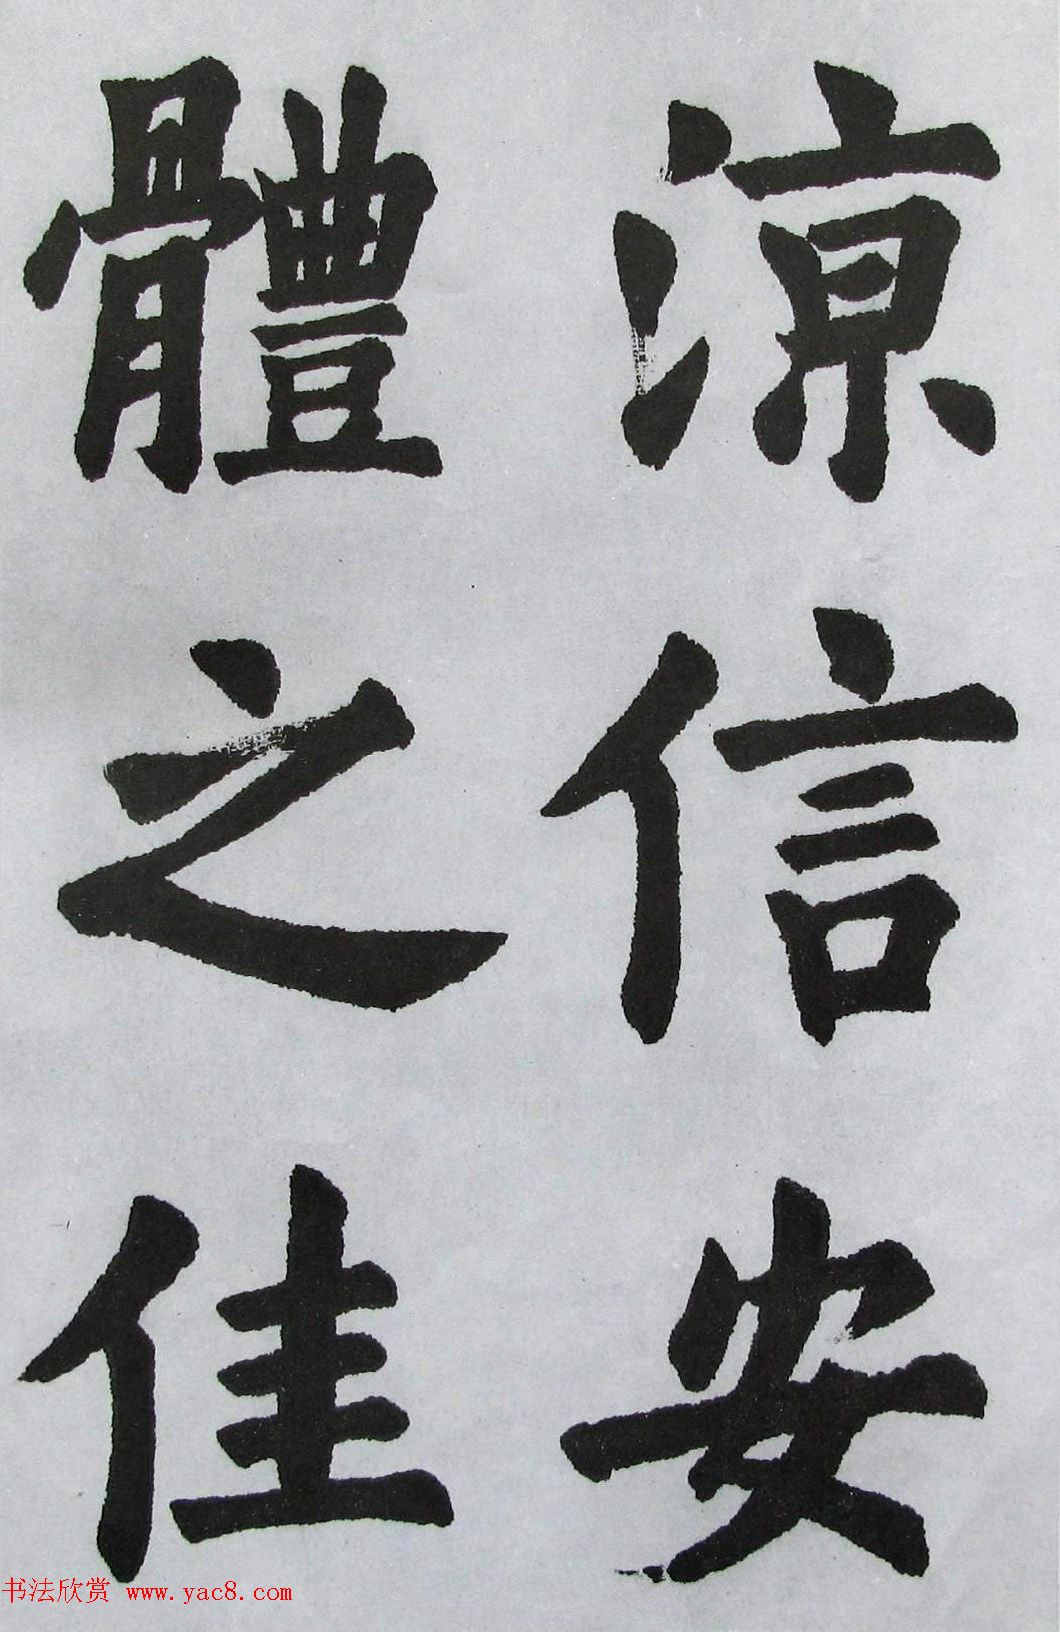 涼信安
體之佳
书法欣赏 www.yac8.com